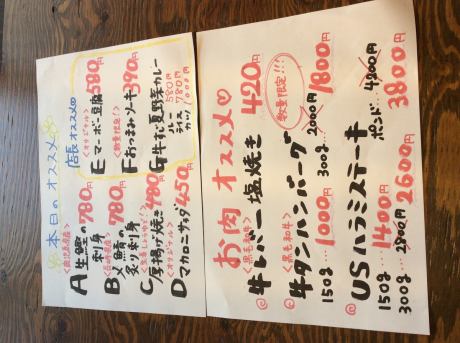 本日のオススメ
<鹿児島県産>
A 生鰹の刺身 780円
<宮崎県産>
B〆鯖の炙り刺身 780円
C厚揚げ焼き 480円
<オリジナル>
Dマカロニサラダ 450円
店長オススメ
<オリジナル>
Eマーボー豆腐 580円
<数量限定!>
Fおつまみソーキ 390円
G牛すじ夏野菜カレー
ルー 580円
ライス 780円
カツ 1000円
お肉オススメ♡
<黒毛和牛>
牛レバー塩焼き 420円
数量限定!!!
<黒毛和牛>
牛タンハンバーグ
150g…1000円 300g…2000円 1800円
USハラミステーキ
150g…1400円 ポンド…4200円 3800円
300g…2800円 2600円